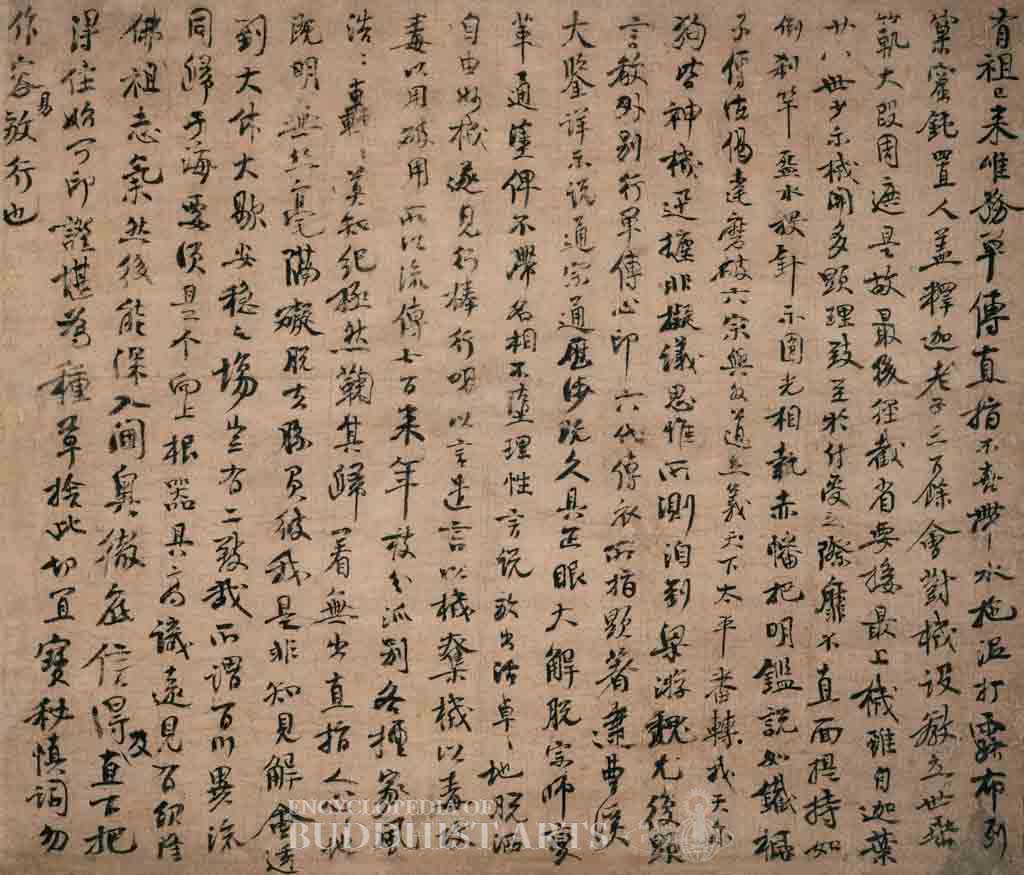 有祖已来唯務單傳直指不喜帶水拖泥打露布列
窠窟鈍置人盖釋迦老子三百餘會對機設教立世垂
範大段周遮是故最後径截省要接最上機雖自迦葉
廿八世少示機関多顕理致至於付受之際靡不直面提持如
倒刹竿盋水投針示圓光相執赤幡把明鑑說如鐵橛
子傳法偈達磨破六宗與外道立義天下太平番轉我天尒
狗皆神機迅捷非擬議思惟所測洎到梁游魏尤復顕
言教外別行單傳心印六代傳衣所指顕著逮曹溪
大鑒詳示說通宗通歷涉既久具正眼大解脫宗師變
革通塗俾不滯名相不墮理性言說放出活卓〻地脫洒
自由妙機遂見行棒行喝以言遣言以機奪機以毒攻
毒以用破用所以流傳七百来年枝分派別各擅家風
浩〻轟〻莫知紀極然鞠其歸著無出直指人心心地
既明無絲毫隔礙脫去勝負彼我是非知見解會透
到大休大歇安穩之場豈有二致哉所謂百川異流
同歸于海要須是个向上根器具高識遠見有紹隆
佛祖志氣然後能深入閫奧徹底信得及直下把
得住始可印證堪為種草捨此切宜寶秘慎詞勿
作容易放行也
ENCYCLOPEDIA OF
BUDDHIST ARTS